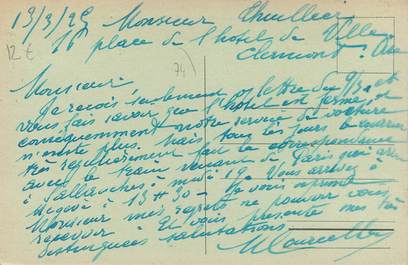 13/3/25 Monsieur
16 place de l'hotel de Ville
Clermont. Oise
12 €
74
Monsieur
Je reçois seulement v/ lettre du 9/3 et
vous fais savoir que l'hotel est fermé et
conséquemment notre service de voiture
n'existe plus. Mais tous les jours le courrier
très régulièrement fait la correspondance
avec le train venant de Paris qui arrive
à Sallanches à midi 19. Vous arrivez à
Megève à 13 H 30 - Je vous exprime
Monsieur mes regrets ne pouvoir vous
recevoir et vous présente mes très
distinguées salutations